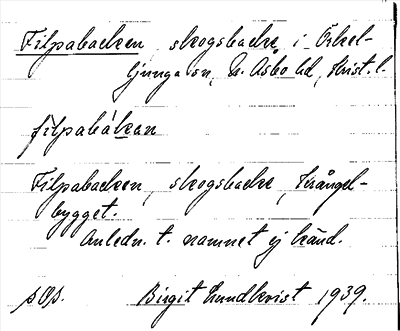 Filpabacken, skogsbacke i Örkel-
ljunga sn, N. Åsbo hd, Krist. l.
filpabákan
Filpabacken, skogsbacke, Krångel-
bygget.
Anledn. t. namnet ej känd.
sOs. Birgit Lundkvist 1939.